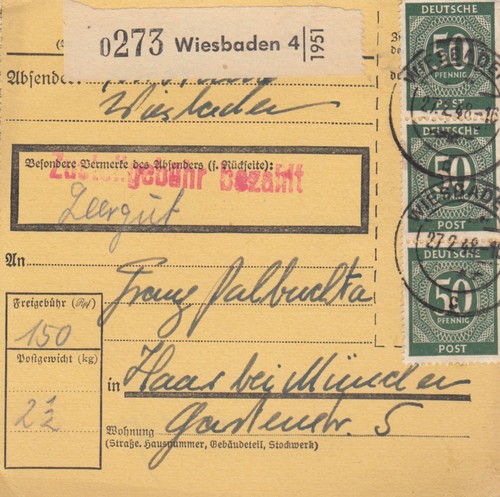 0273 Wiesbaden 4
1951
Absender:
Wiesbaden
Besondere Vermerke des Absenders (s. Rückseite):
Zustellgebühr bezahlt
Leergut
An
Franz
in Haar bei München
Gartenstr. 5
Wohnung
(Straße, Hausnummer, Gebäudeteil, Stockwerk)
Freigebühr (Rpf)
150
Postgewicht (kg)
2½
DEUTSCHE
50
PFENNIG
POST
WIESBADEN
27.2.48
DEUTSCHE
50
PFENNIG
POST
WIESBADEN
27.2.48
c
DEUTSCHE
50
PFENNIG
POST